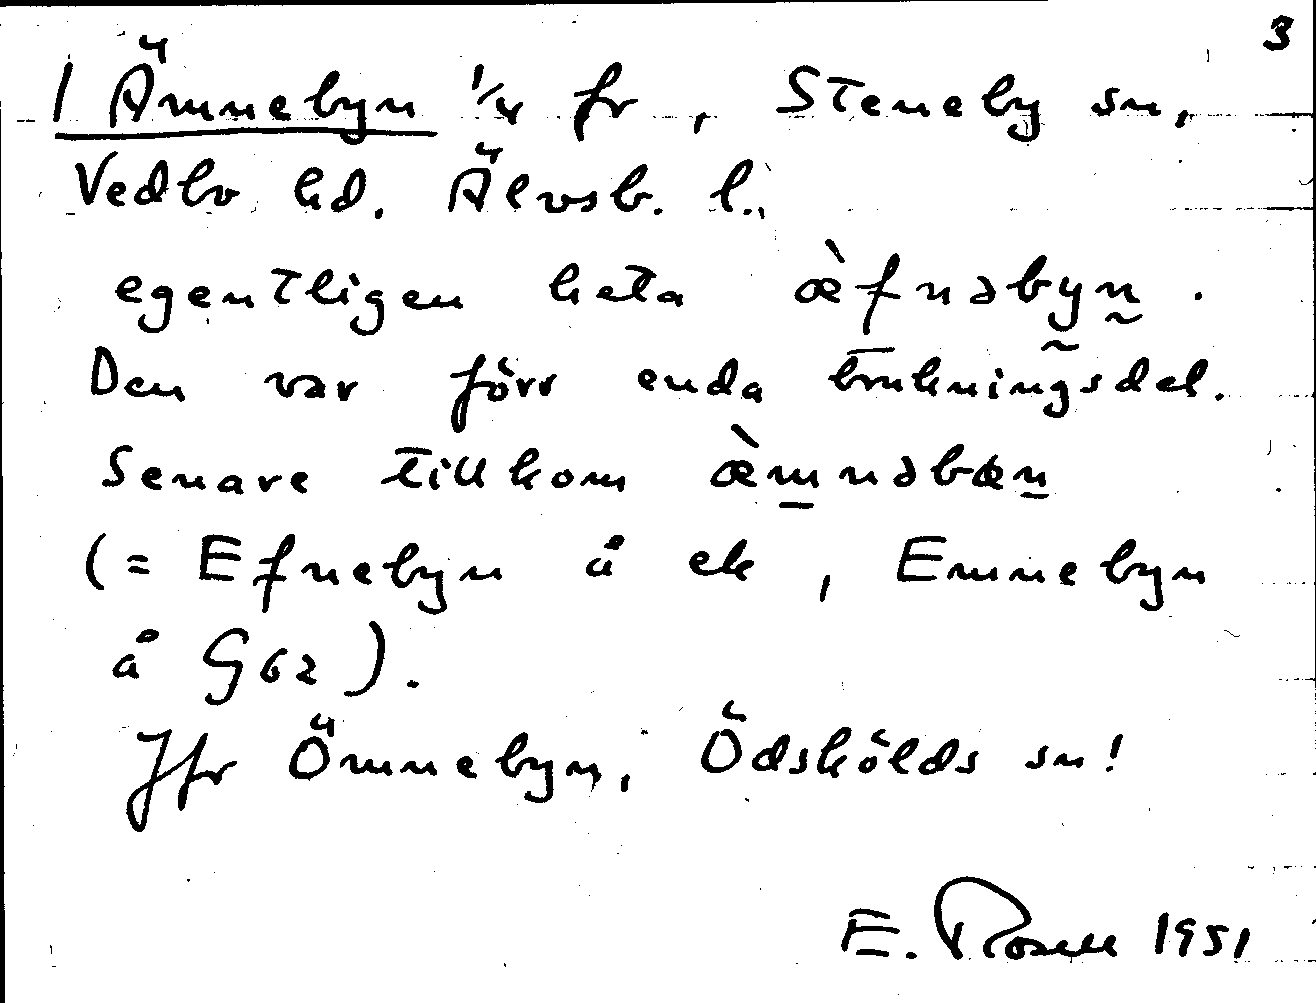 3
1 Ämnebyn 1/4 fr, Steneby sn,
Vedbo hd. Älvsb. l.
egentligen heta æ̀fnəbyn̰.
Den var förr enda brukningsdel.
Senare tillkom æ̀m̲nəbæn̲
(= Efnebyn å ek, Emnebyn
å G62).
Jfr Ömnebyn, Ödskölds sn!
E. Rosell 1951